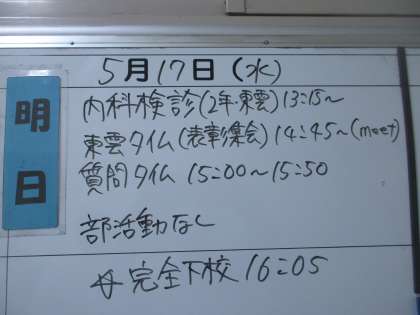 明日
5月17日(水)
内科検診(2年・東雲)13:15~
東雲タイム(表彰集会)14:45~(meet)
質問タイム 15:00~15:50
部活動なし
完全下校 16:05